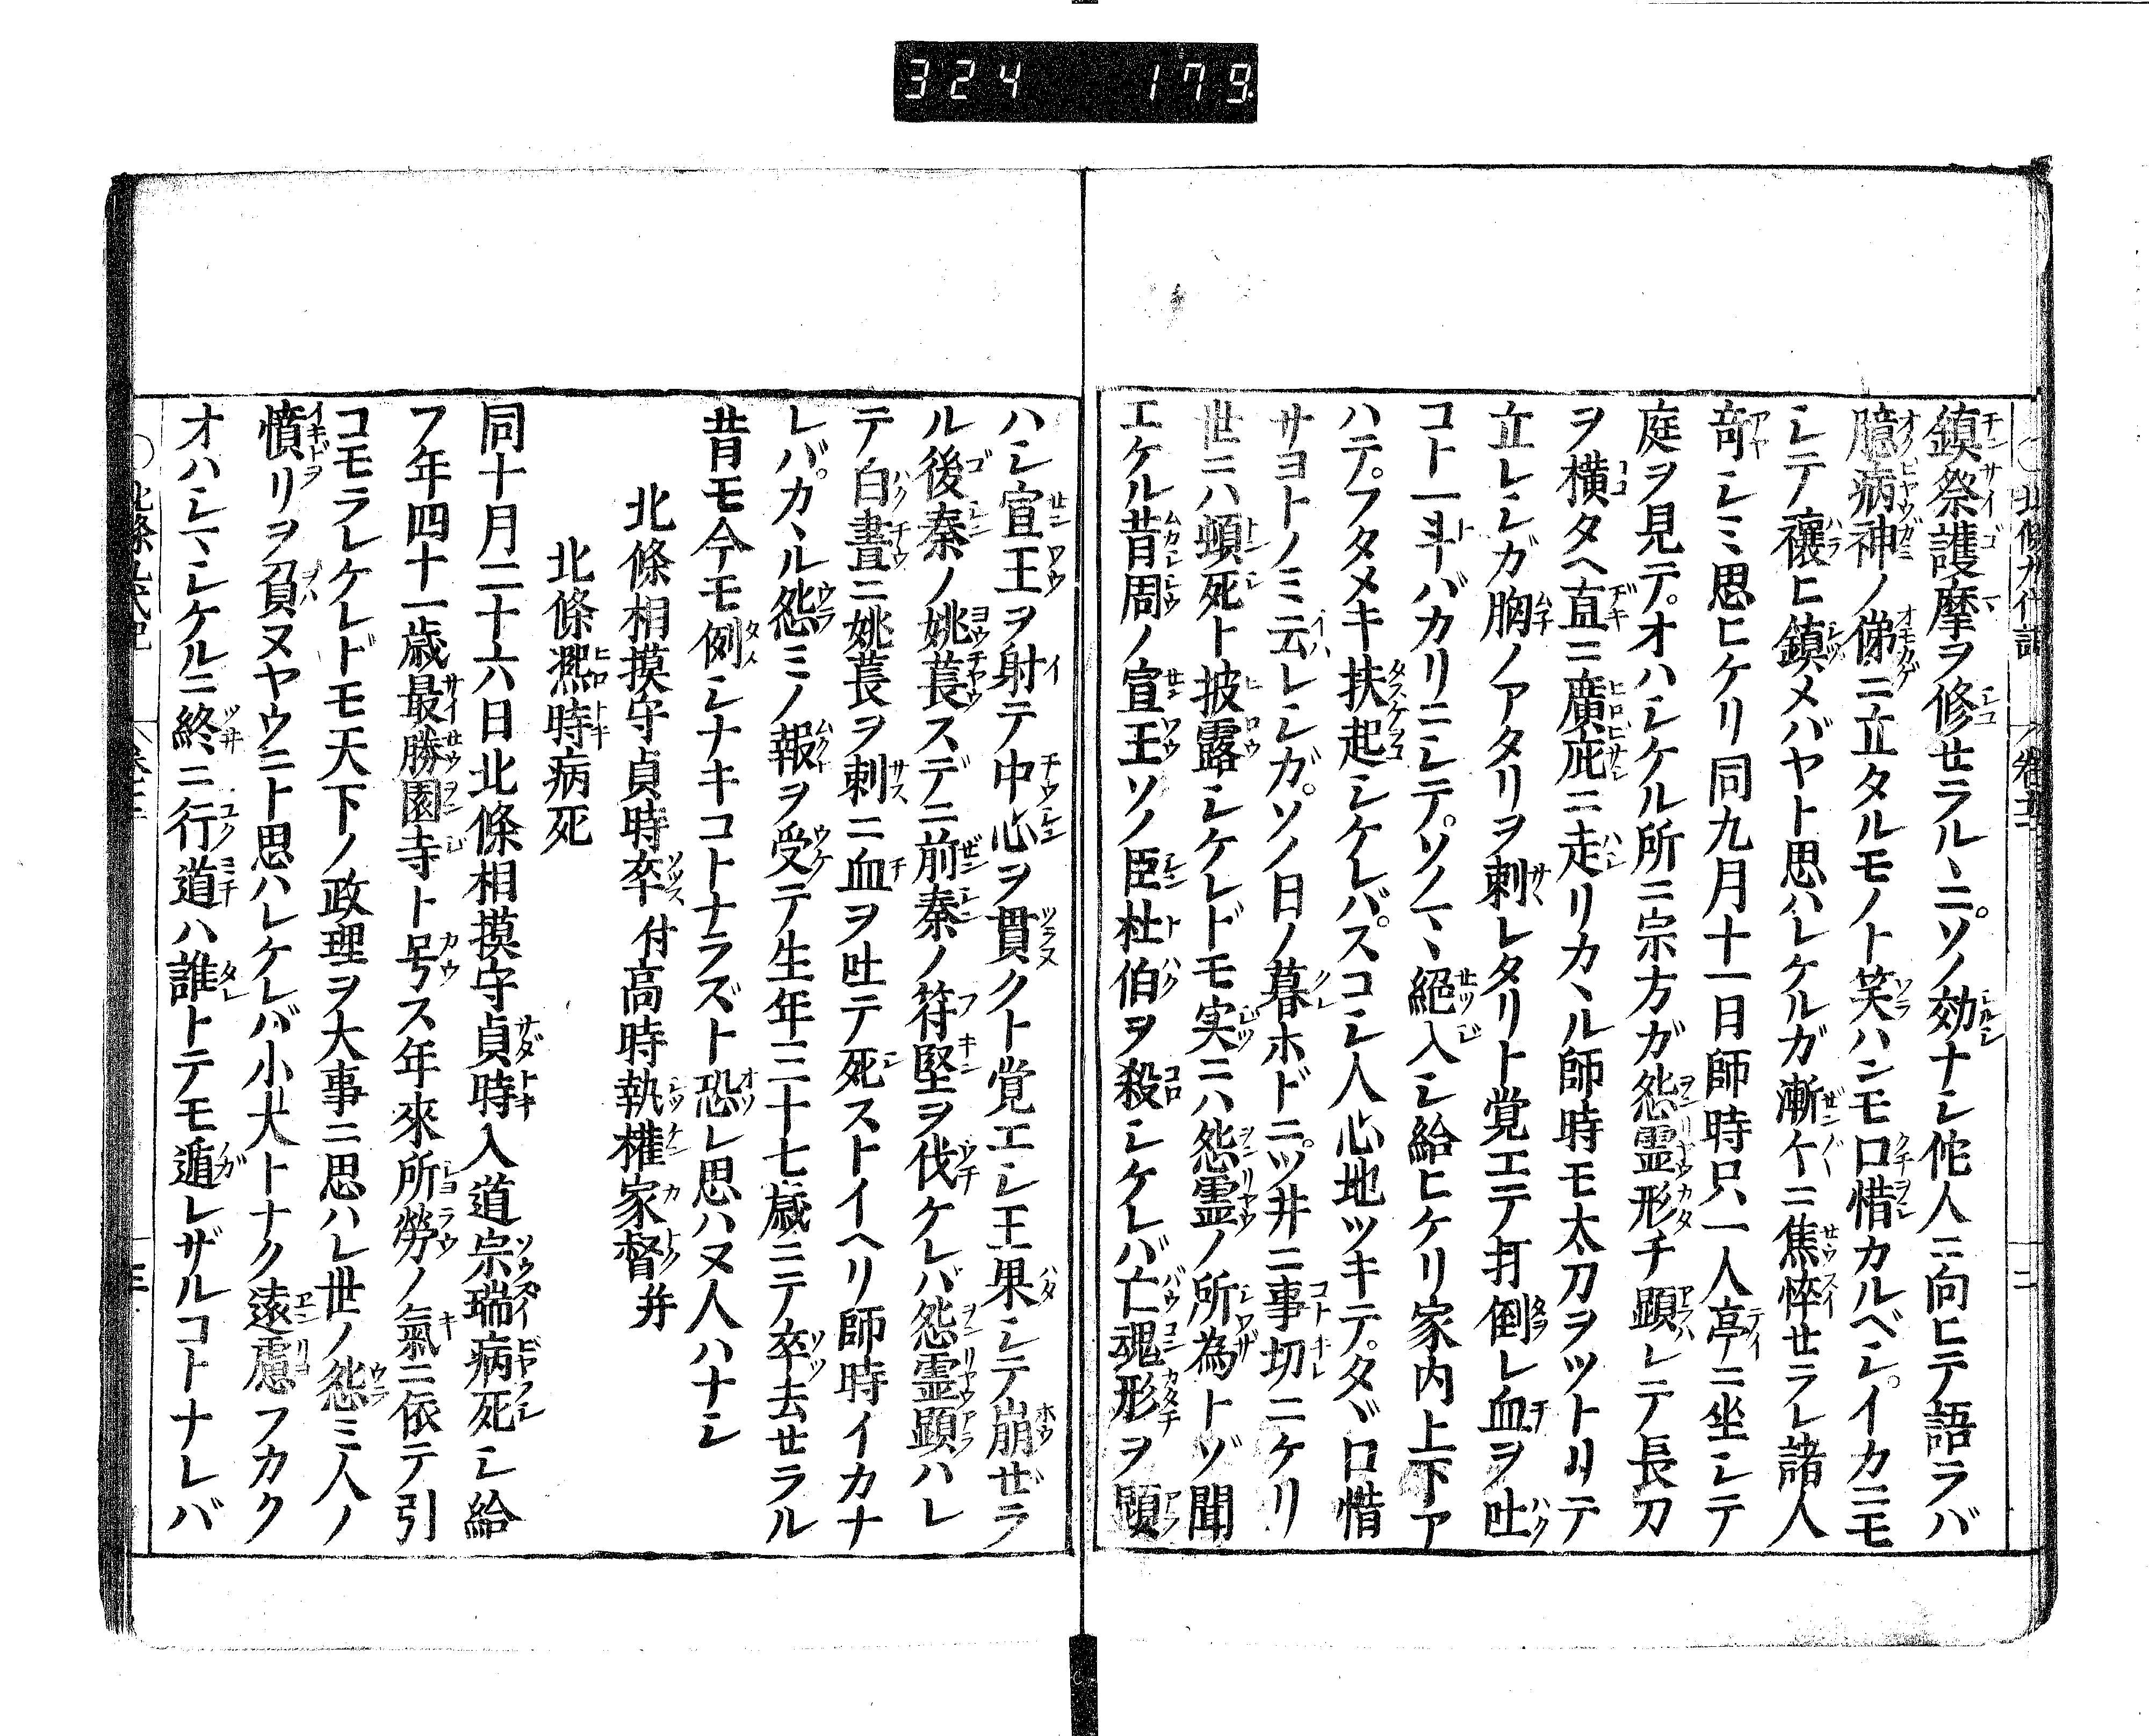 324 179
鎮祭護摩ヲ修せラルヽニソノ効ナシ佗人ニ向ヒテ語ラバ
臆病神ノ俤ニ立タルモノト笑ハンモ口惜カルベシイカニモ
シテ禳ヒ鎮メバヤト思ハレケルガ漸々ニ焦悴せラレ諸人
竒シミ思ヒケリ同九月十一日師時只一人亭ニ坐シテ
庭ヲ見テオハシケル所ニ宗方ガ怨霊形チ顕レテ長刀
ヲ横タヘ直ニ廣庇ニ走リカヽル師時モ太刀ヲツトリテ
立レシガ胸ノアタリヲ刺レタリト覚エテ打倒レ血ヲ吐
コト一斗バカリニシテソノマヽ絶入シ給ヒケリ家内上下ア
ハテフタメキ扶起シケレバスコシ人心地ツキテタヾ口惜
サヨトノミ云レシガソノ日ノ暮ホドニツ井ニ事切ニケリ
世ニハ頓死ト披露シケレドモ実ニハ怨霊ノ所為トゾ聞
エケル昔周ノ宣王ソノ臣杜伯ヲ殺シケレバ亡魂形ヲ顕
ハシ宣王ヲ射テ中心ヲ貫クト覚エシ王果シテ崩ぜラ
ル後秦ノ姚萇スデニ前秦ノ符堅ヲ伐ケレバ怨霊顕ハレ
テ白晝ニ姚萇ヲ刺ニ血ヲ吐テ死ストイヘリ師時イカナ
レバカヽル怨ミノ報ヲ受テ生年三十七歳ニテ卒去せラル
昔モ今モ例シナキコトナラズト恐レ思ハヌ人ハナシ
北條相摸守貞時卒 付高時執權家督并
北條凞時病死
同十月二十六日北條相摸守貞時入道宗瑞病死シ給
フ年四十一歳最勝園寺ト号ス年來所勞ノ氣ニ依テ引
コモラレケレドモ天下ノ政理ヲ大事ニ思ハレ世ノ怨ミ人ノ
憤リヲ負ヌヤウニト思ハレケレバ小大トナク遠慮フカク
オハシマシケルニ終ニ行道ハ誰トテモ遁レザルコトナレバ